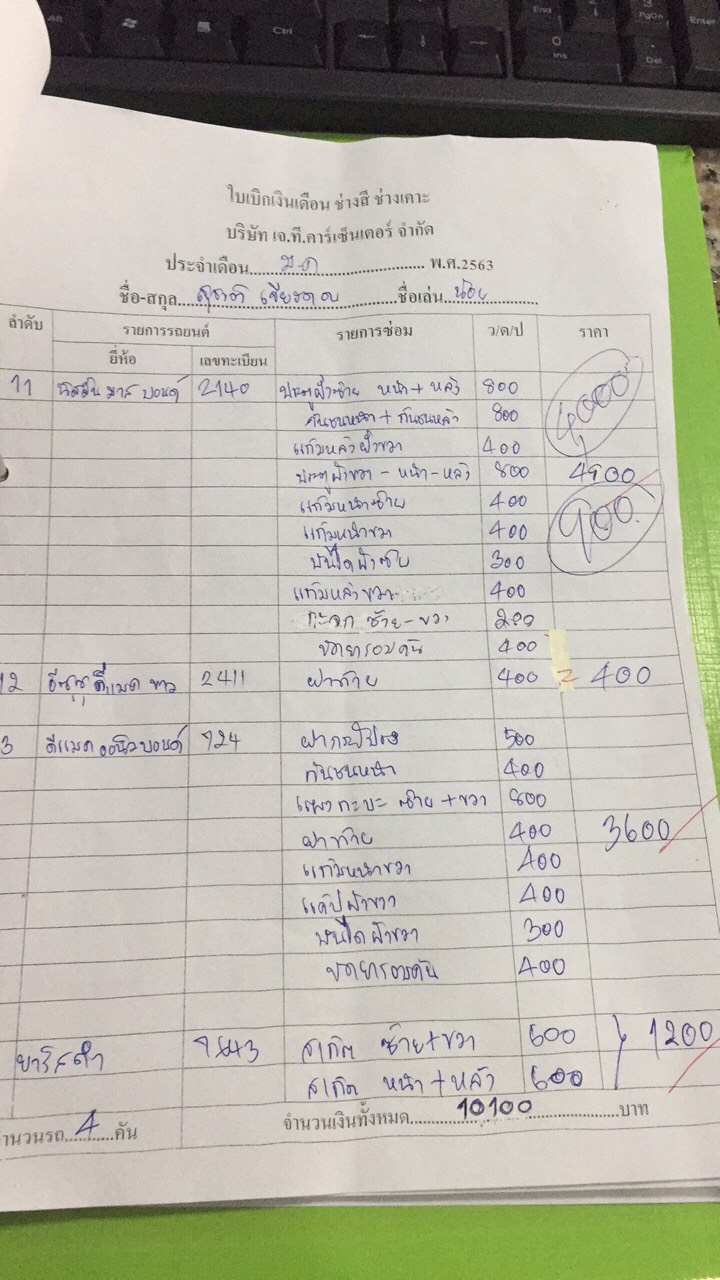 ใบเบิกเงินเดือน ช่างสี ช่างเคาะ
บริษัท เจ.ที.คาร์เซ็นเตอร์ จำกัด
ประจำเดือน ม.ค พ.ศ.2563
ชื่อ-สกุล ชื่อเล่น น้อย
ลำดับ รายการรถยนต์ รายการซ่อม ว/ด/ป ราคา
ยี่ห้อ เลขทะเบียน
11 บอนด์ 2140 ประตูฝาซ้าย หน้า + หลัง 800 4000
กันชนหน้า + กันชนหลัง 800
แก้มหลังฝาขวา 400
ประตูฝาขวา - หน้า - หลัง 800 4900
แก้มหน้าซ้าย 400 900
แก้มหน้าขวา 400
บันได 300
แก้มหลังขวา 400
กะจก ซ้าย - ขวา 200
ขัดยารอบคัน 400
12 อีซูซุ ดีแมค ขาว 2411 ฝาท้าย 400 = 400
3 ดีแมค บอนด์ 724 ฝากระโปรง 500
กันชนหน้า 400
กะบะ ซ้าย + ขวา 800
ฝาท้าย 400 3600
แก้มหน้าขวา 400
แค๊ปฝาขวา 400
บันไดฝาขวา 300
ขัดยารอบคัน 400
ยาริสดำ สเกิต ซ้าย + ขวา 600 1200
สเกิต หน้า + หลัง 600
จำนวนรถ 4 คัน จำนวนเงินทั้งหมด 10100 บาท